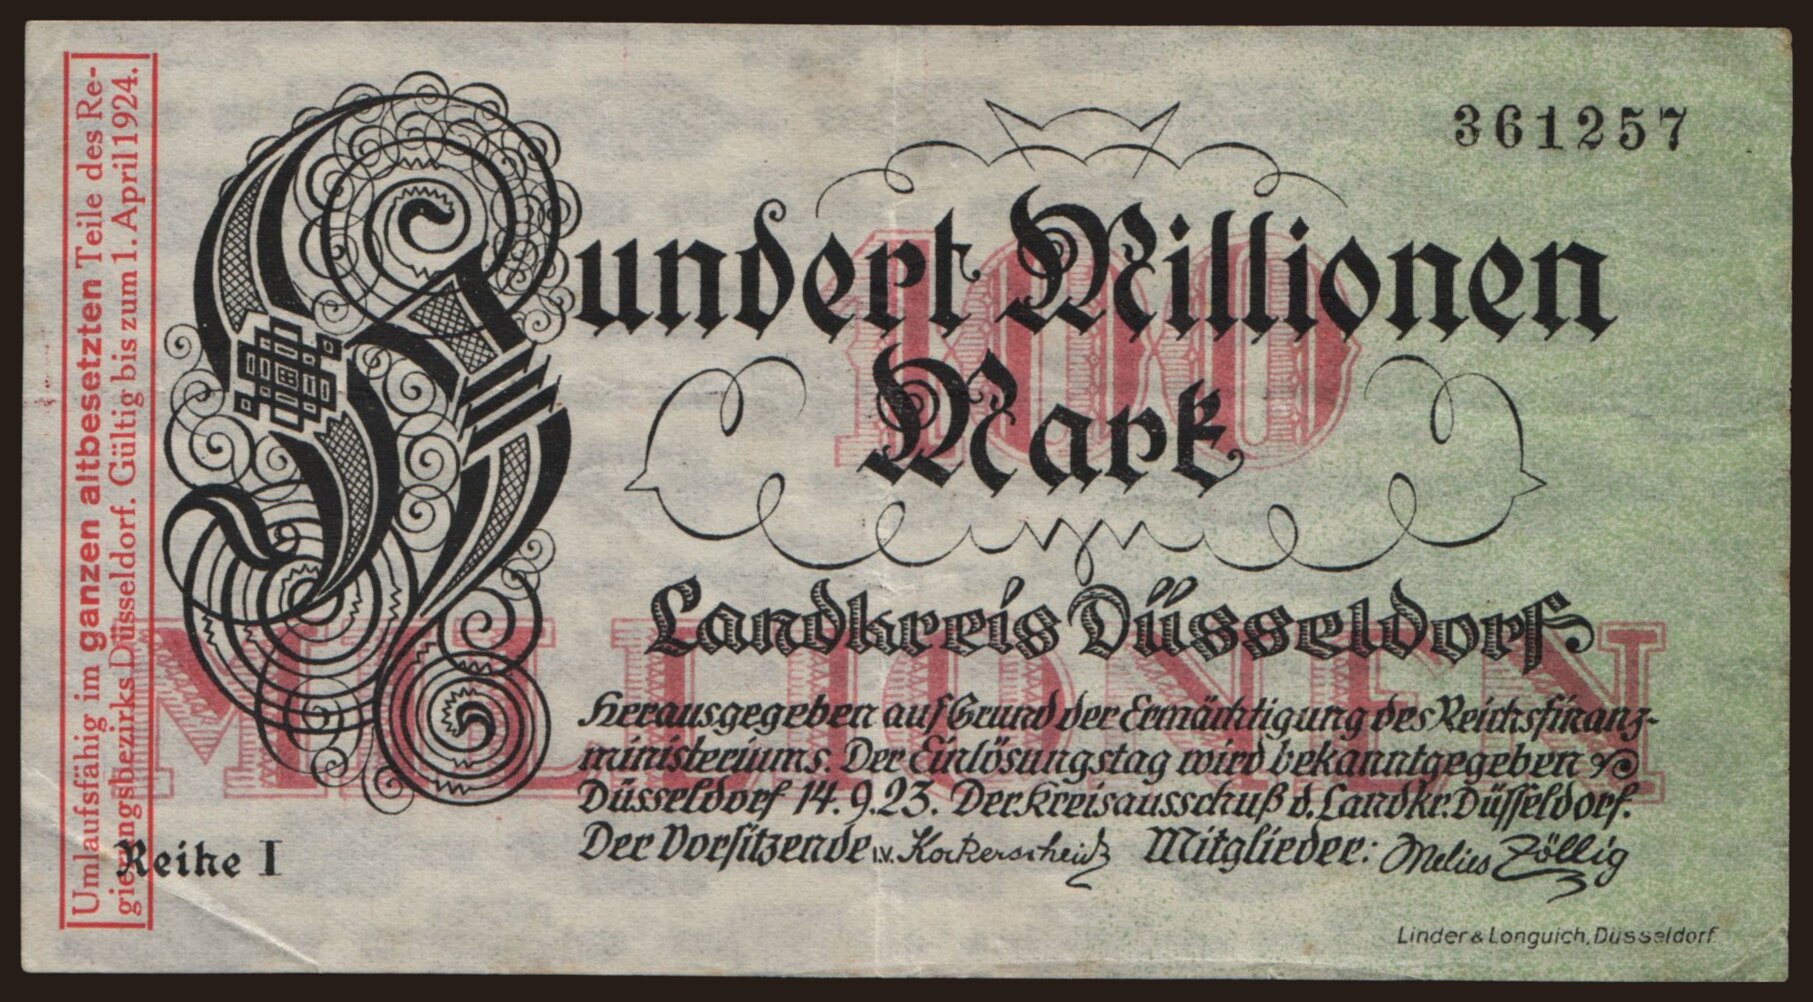 Umlaufsfähig im ganzen altbesetzten Teile des Re-
gierungsbezirks Düsseldorf. Gültig bis zum 1. April 1924.
361257
Hundert Millionen
Mark
100
MILLIONEN
Landkreis Düsseldorf
Herausgegeben auf Grund der Ermächtigung des Reichsfinanz-
ministeriums. Der Einlösungstag wird bekanntgegeben
Düsseldorf 14.9.23. Der Kreisausschuß d. Landkr. Düsseldorf.
Der Vorsitzende i.v. Mitglieder: Melies Zöllig
Reihe I
Linder & Longuich, Düsseldorf